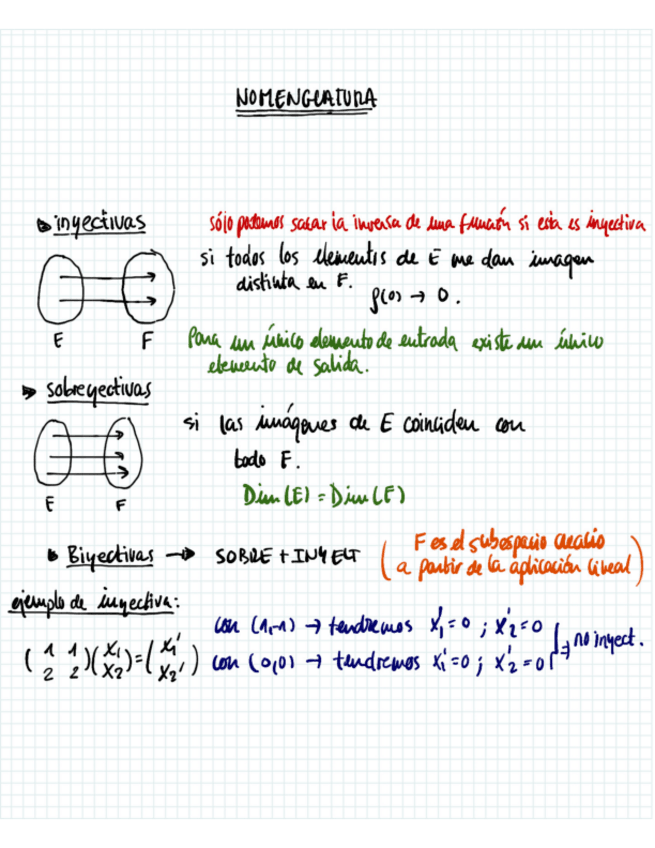 NOMENCLATURA
inyectivas
sólo podemos sacar la inversa de una función si esta es inyectiva
si todos los elementos de E me dan imagen
distinta en F.
f(0) → 0.
E F
Para un único elemento de entrada existe un único
elemento de salida.
sobreyectivas
si las imágenes de E coinciden con
todo F.
E F
Dim(E) = Dim(F)
Biyectivas → SOBRE + INYECT
(F es el subespacio creado
a partir de la aplicación lineal)
ejemplo de inyectiva:
con (1,-1) → tendremos x₁' = 0 ; x₂' = 0
(1 1
2 2)(x₁
x₂) = (x₁'
x₂')
con (0,0) → tendremos x₁' = 0 ; x₂' = 0
⇒ no inyect.